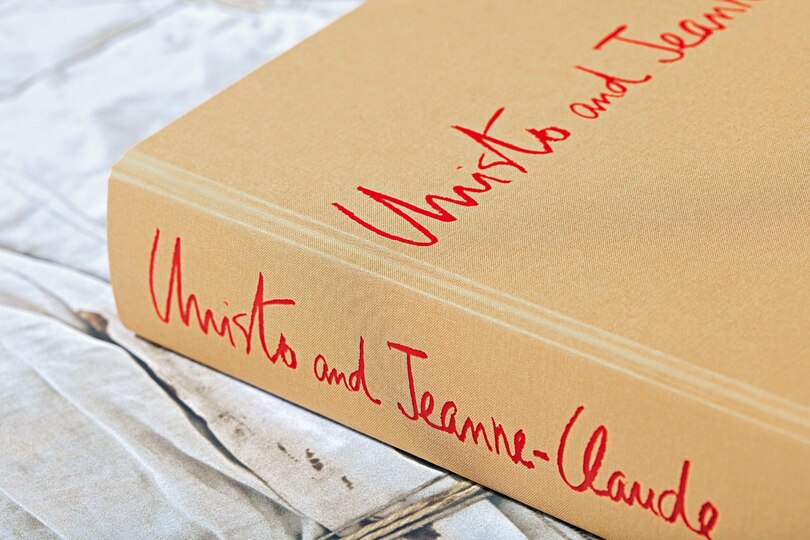 Christo and Jeann
Christo and Jeanne-Claude